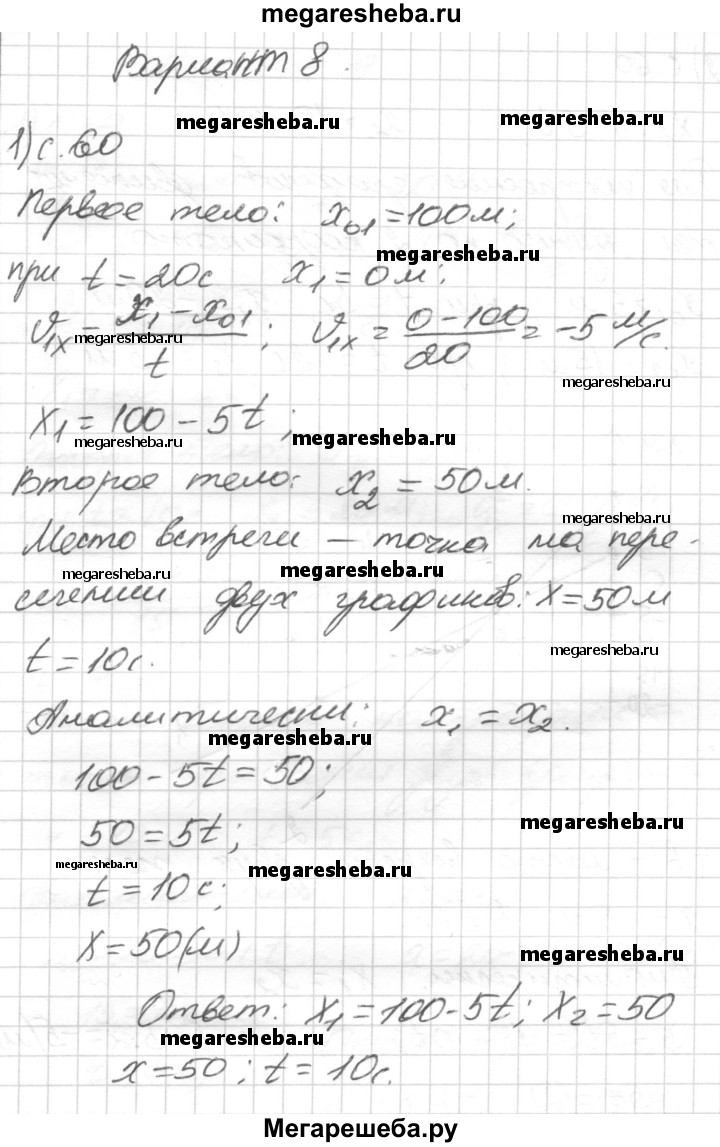 megaresheba.ru
Вариант 8.
megaresheba.ru
megaresheba.ru
1) с. 60
Первое тело: x₀₁ = 100м;
megaresheba.ru
при t = 20с x₁ = 0м;
υ₁ₓ = (x₁ - x₀₁)/t; υ₁ₓ = (0 - 100)/20 = -5 м/с.
megaresheba.ru
megaresheba.ru
x₁ = 100 - 5t;
megaresheba.ru
megaresheba.ru
Второе тело: x₂ = 50м.
megaresheba.ru
Место встречи — точка на пере-
megaresheba.ru
megaresheba.ru
сечении двух графиков: x = 50м
t = 10с.
megaresheba.ru
Аналитически: x₁ = x₂.
megaresheba.ru
100 - 5t = 50;
50 = 5t;
megaresheba.ru
megaresheba.ru
megaresheba.ru
t = 10с;
x = 50(м)
megaresheba.ru
Ответ: x₁ = 100 - 5t; x₂ = 50
megaresheba.ru
x = 50; t = 10с.
Мегарешеба.ру